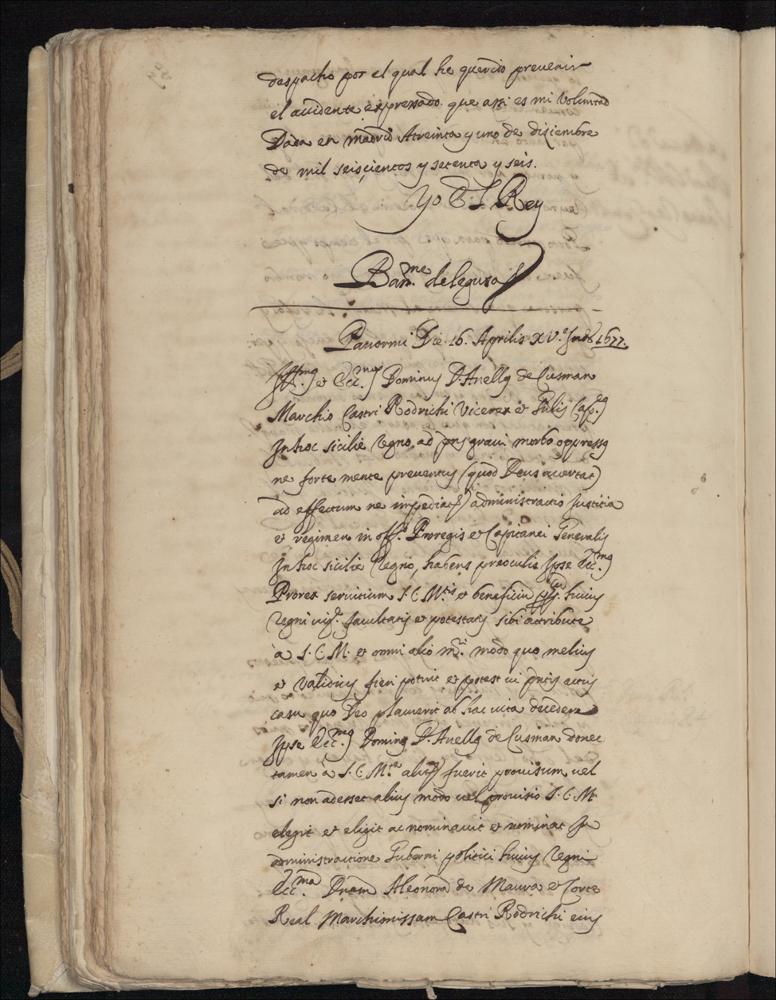 despacho por el qual he querido prevenir
el accidente expresado que assi es mi Voluntad
Dada en madrid Atreinta y uno de diciembre
de mil seiscientos y setenta y seis.
Yo El Rey
Bar.me delegusa
Panormi Die 16. Aprilis XV.e Ind.s 1677.
Ill.mus et Ecc.mus Dominus D. Anellus de Cusman
Marchio Castri Rodrichi Vicerex et
In hoc sicilie Regno, ad p̄ns gravi morbo oppressus
ne forte mente preventus (quod Deus avertat)
ad effectum ne impediatur administratio Justitia
et regimen in off.o Proregis et Capitanei Generalis
In hoc sicilie Regno, habens preoculis Ipse Ecc.mus
Prorex servitium S. C. M.tis et beneficiu huius
Regni vig.e facultatis et potestatis sibi attribute
a S. C. M. et omni alio m.ri modo quo melius
et validius fieri potuit et potest vi p̄ntis actus
casu quo Deo placuerit ab hac vita decedere
Ipse Ecc.mus Dominus D. Anellus de Cusman donec
tamen a S. C. M.te aliter fuerit provisum vel
si non adesset alius modo vel provisio S. C. M.
elegit et eligit ac nominavit et nominat In
administratione Guberni politici huius Regni
Ecc.ma Dnam Aleonora de Maura et Corte
Real Marchionissam Castri Rodrichi eius